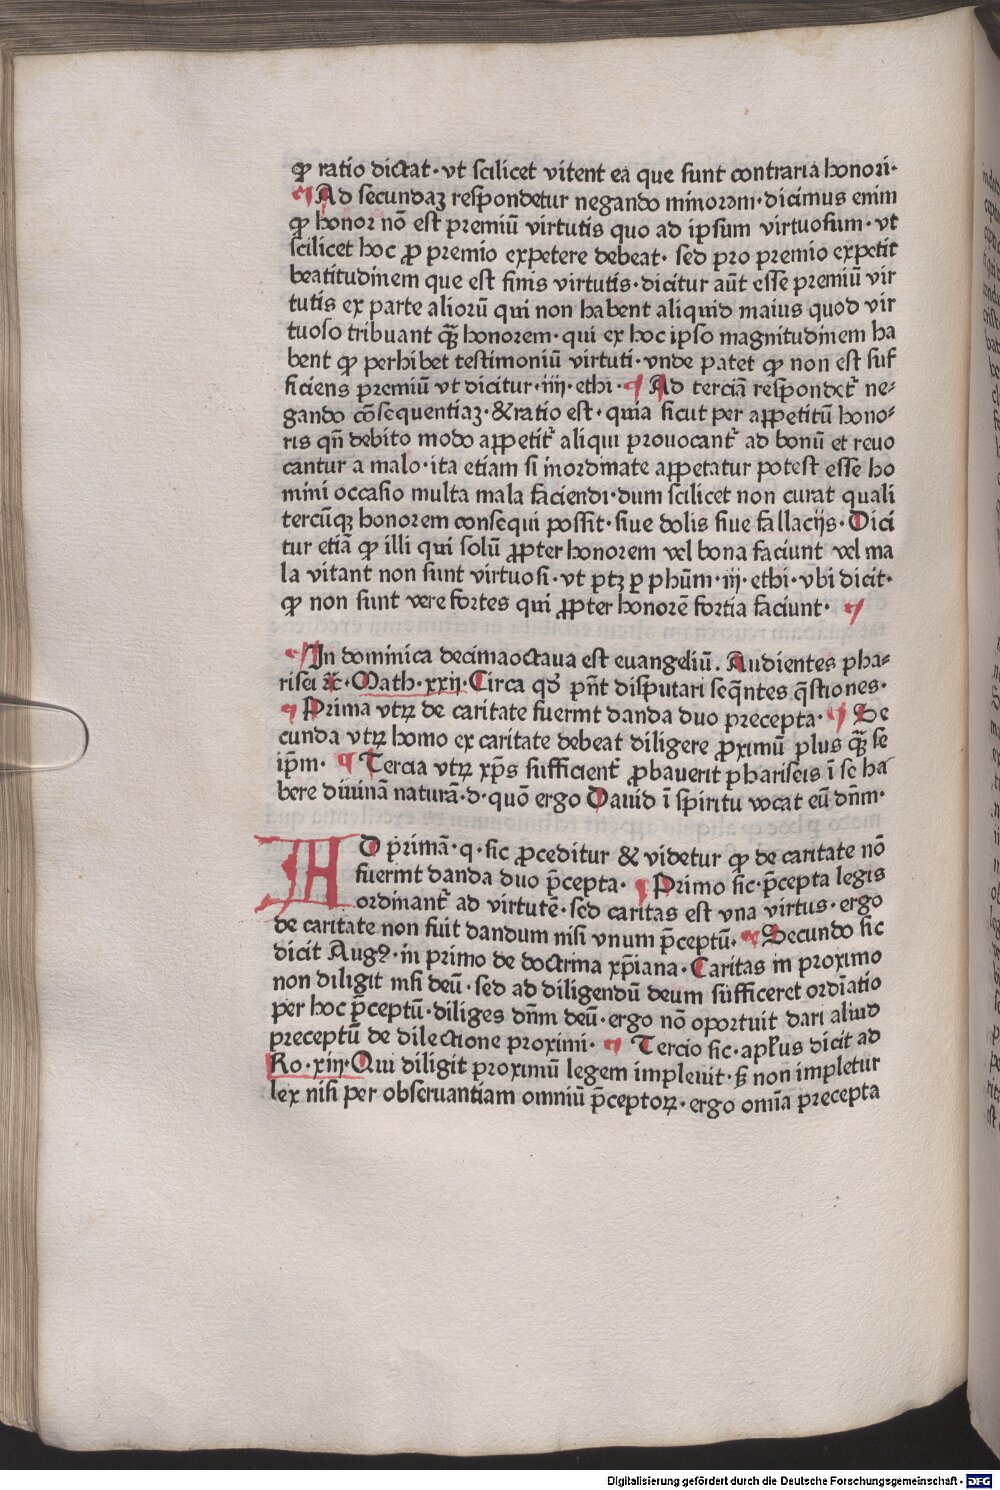 ꝙ ratio dictat·vt scilicet vitent ea que sunt contraria honori·
¶ Ad secundaꝫ respondetur negando minorem·dicimus enim
ꝙ honor nō est premiū virtutis quo ad ipsum virtuosum·vt
scilicet hoc ꝓ premio expetere debeat· sed pro premio expetit
beatitudinem que est finis virtutis·dicitur aūt esse premiū vir
tutis ex parte aliorū qui non habent aliquid maius quod vir
tuoso tribuant ꝗ̄ honorem·qui ex hoc ipso magnitudinem ha
bent ꝙ perhibet testimoniū virtuti·vnde patet ꝙ non est suf
ficiens premiū vt dicitur·iiij·ethi·¶ Ad terciā respondet᷑ ne⸗
gando cōsequentiaꝫ·&ratio est·quia sicut per appetitū hono⸗
ris qn̄ debito modo appetit᷑ aliqui prouocant᷑ ad bonū et reuo
cantur a malo·ita etiam si inordinate appetatur potest esse ho
mini occasio multa mala faciendi·dum scilicet non curat quali
tercūqꝫ honorem consequi possit·siue dolis siue fallacijs·Dici
tur etiā ꝙ illi qui solū ꝓpter honorem vel bona faciunt vel ma
la vitant non sunt virtuosi·vt ptꝫ ꝑ phūm·iij·ethi·vbi dicit·
ꝙ non sunt vere fortes qui ꝓpter honorē fortia faciunt· ¶
¶In dominica decimaoctaua est euangeliū. Audientes pha⸗
risei ⁊c·Math·xxij·Circa qd̄ pn̄t disputari seq̄ntes q̄stiones·
¶ Prima vtꝝ de caritate fuerint danda duo precepta· ¶ Se
cunda vtꝝ homo ex caritate debeat diligere ꝓximū plus ꝗ̄ se
ip̄m· ¶ Tercia vtꝝ xp̄s sufficient᷑ ꝓbauerit phariseis ī se ha
bere diuinā naturā·d·quō ergo Dauid ī spiritu vocat eū dn̄m·
AD primā·q·sic ꝓceditur & videtur ꝙ de caritate nō
fuerint danda duo p̄cepta· ¶ Primo sic·p̄cepta legis
ordinant᷑ ad virtutē·sed caritas est vna virtus·ergo
de caritate non fuit dandum nisi vnum p̄ceptū·¶ Secundo sic
dicit Augꝰ·in primo de doctrina xp̄iana·Caritas in proximo
non diligit nisi deū·sed ad diligendū deum sufficeret ordīatio
per hoc p̄ceptū·diliges dn̄m deū·ergo nō oportuit dari aliud
preceptū de dilectione proximi· ¶ Tercio sic·apl̄us dicit ad
Ro·xiij·Qui diligit proximū legem impleuit·s̄ non impletur
lex nisi per obseruantiam omniū p̄ceptoꝝ·ergo omīa precepta
Digitalisierung gefördert durch die Deutsche Forschungsgemeinschaft · DFG